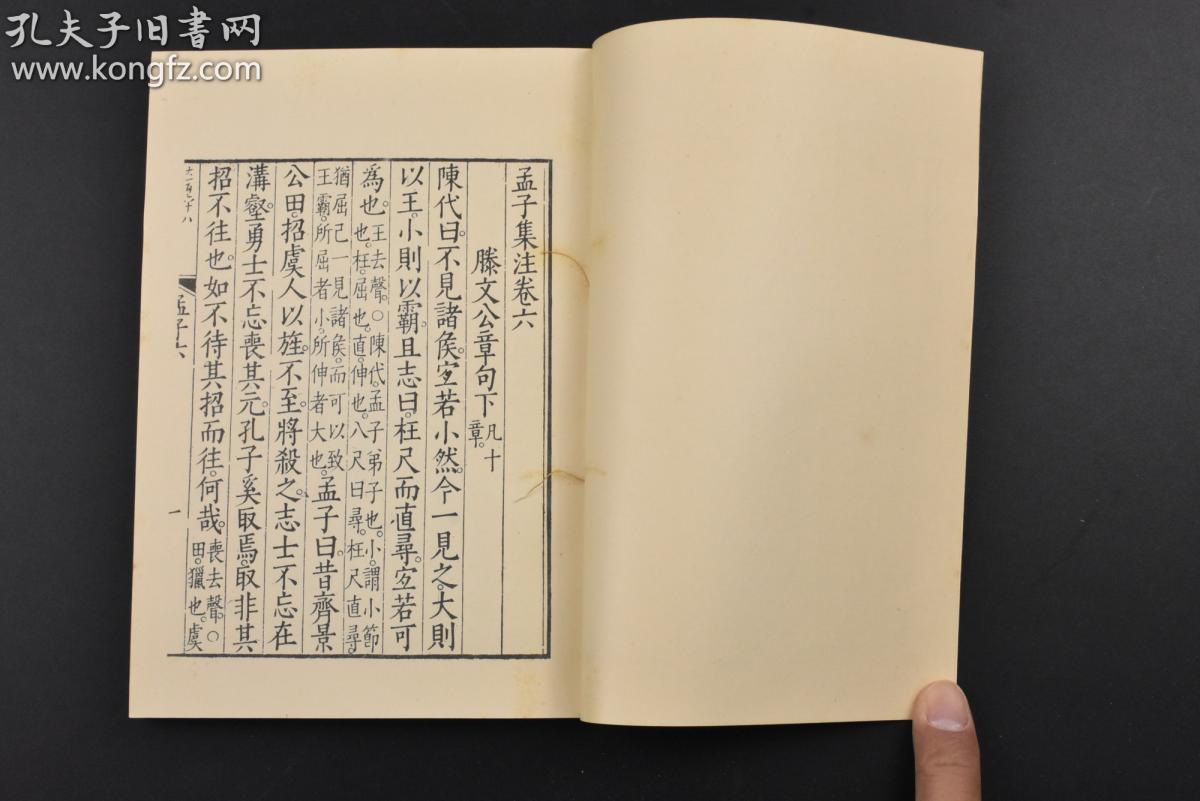 孔夫子旧书网
www.kongfz.com
孟子集注卷六
滕文公章句下凡十章。
陳代曰。不見諸侯。宜若小然。今一見之。大則
以王。小則以霸。且志曰。枉尺而直尋。宜若可
為也。王去聲。○陳代。孟子弟子也。小。謂小節也。枉。屈也。直。伸也。八尺曰尋。枉尺直尋。
猶屈己一見諸侯。而可以致王霸。所屈者小。所伸者大也。孟子曰。昔齊景
公田。招虞人以旌。不至。將殺之。志士不忘在
溝壑。勇士不忘喪其元。孔子奚取焉。取非其
招不往也。如不待其招而往。何哉。喪去聲。○田。獵也。虞
孟子六
一